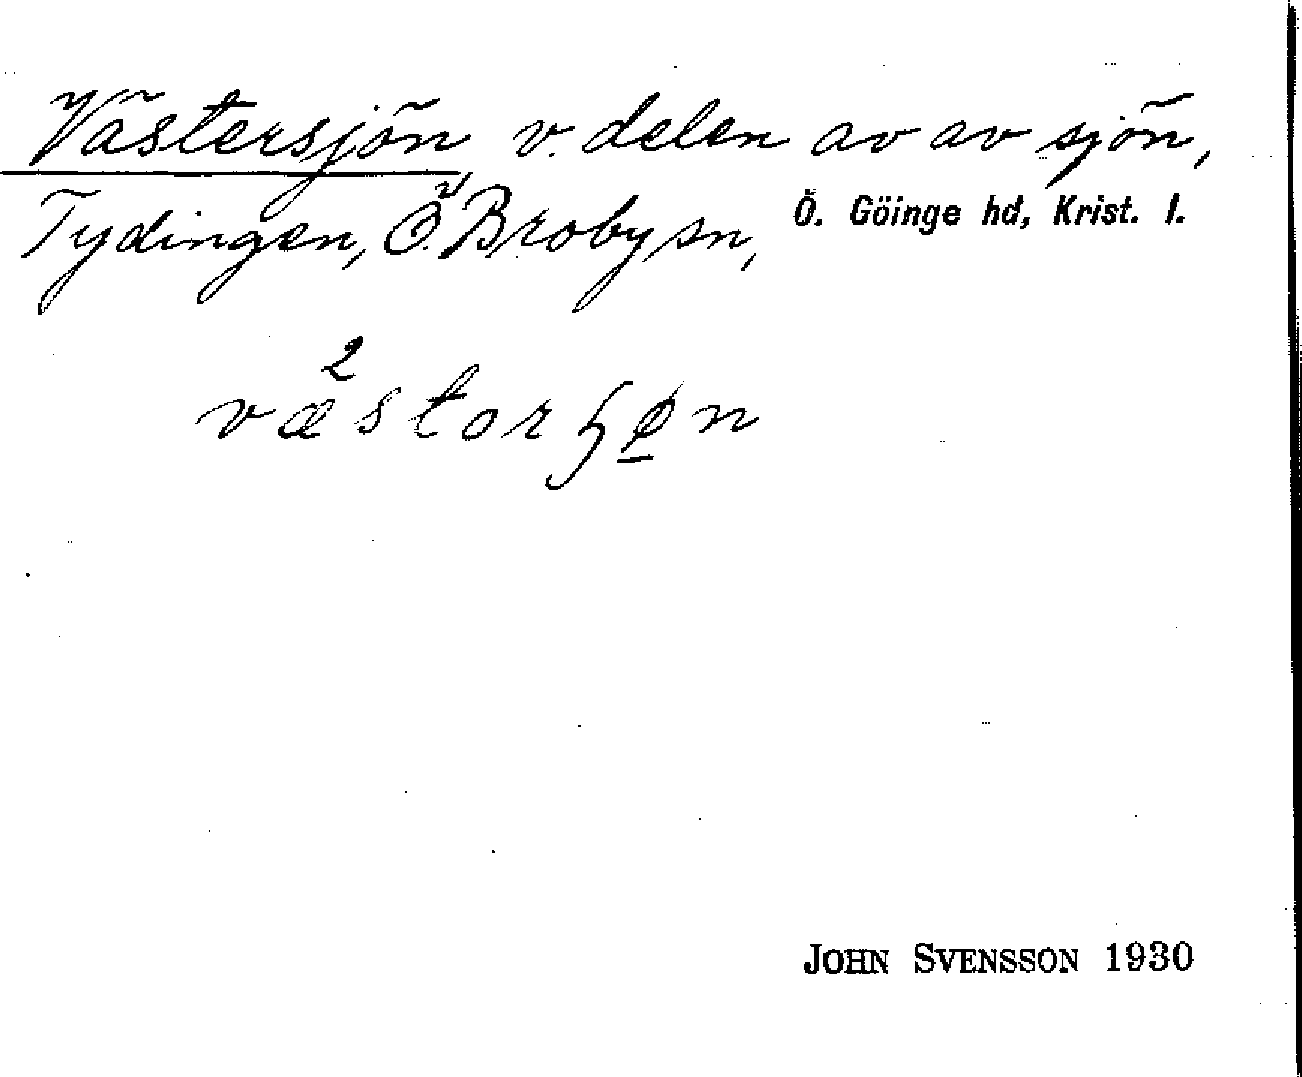 Västersjön, v. delen av av sjön,
Tydingen, Ö. Broby sn, Ö. Göinge hd, Krist. l.
væ²storɧø̲n
JOHN SVENSSON 1930